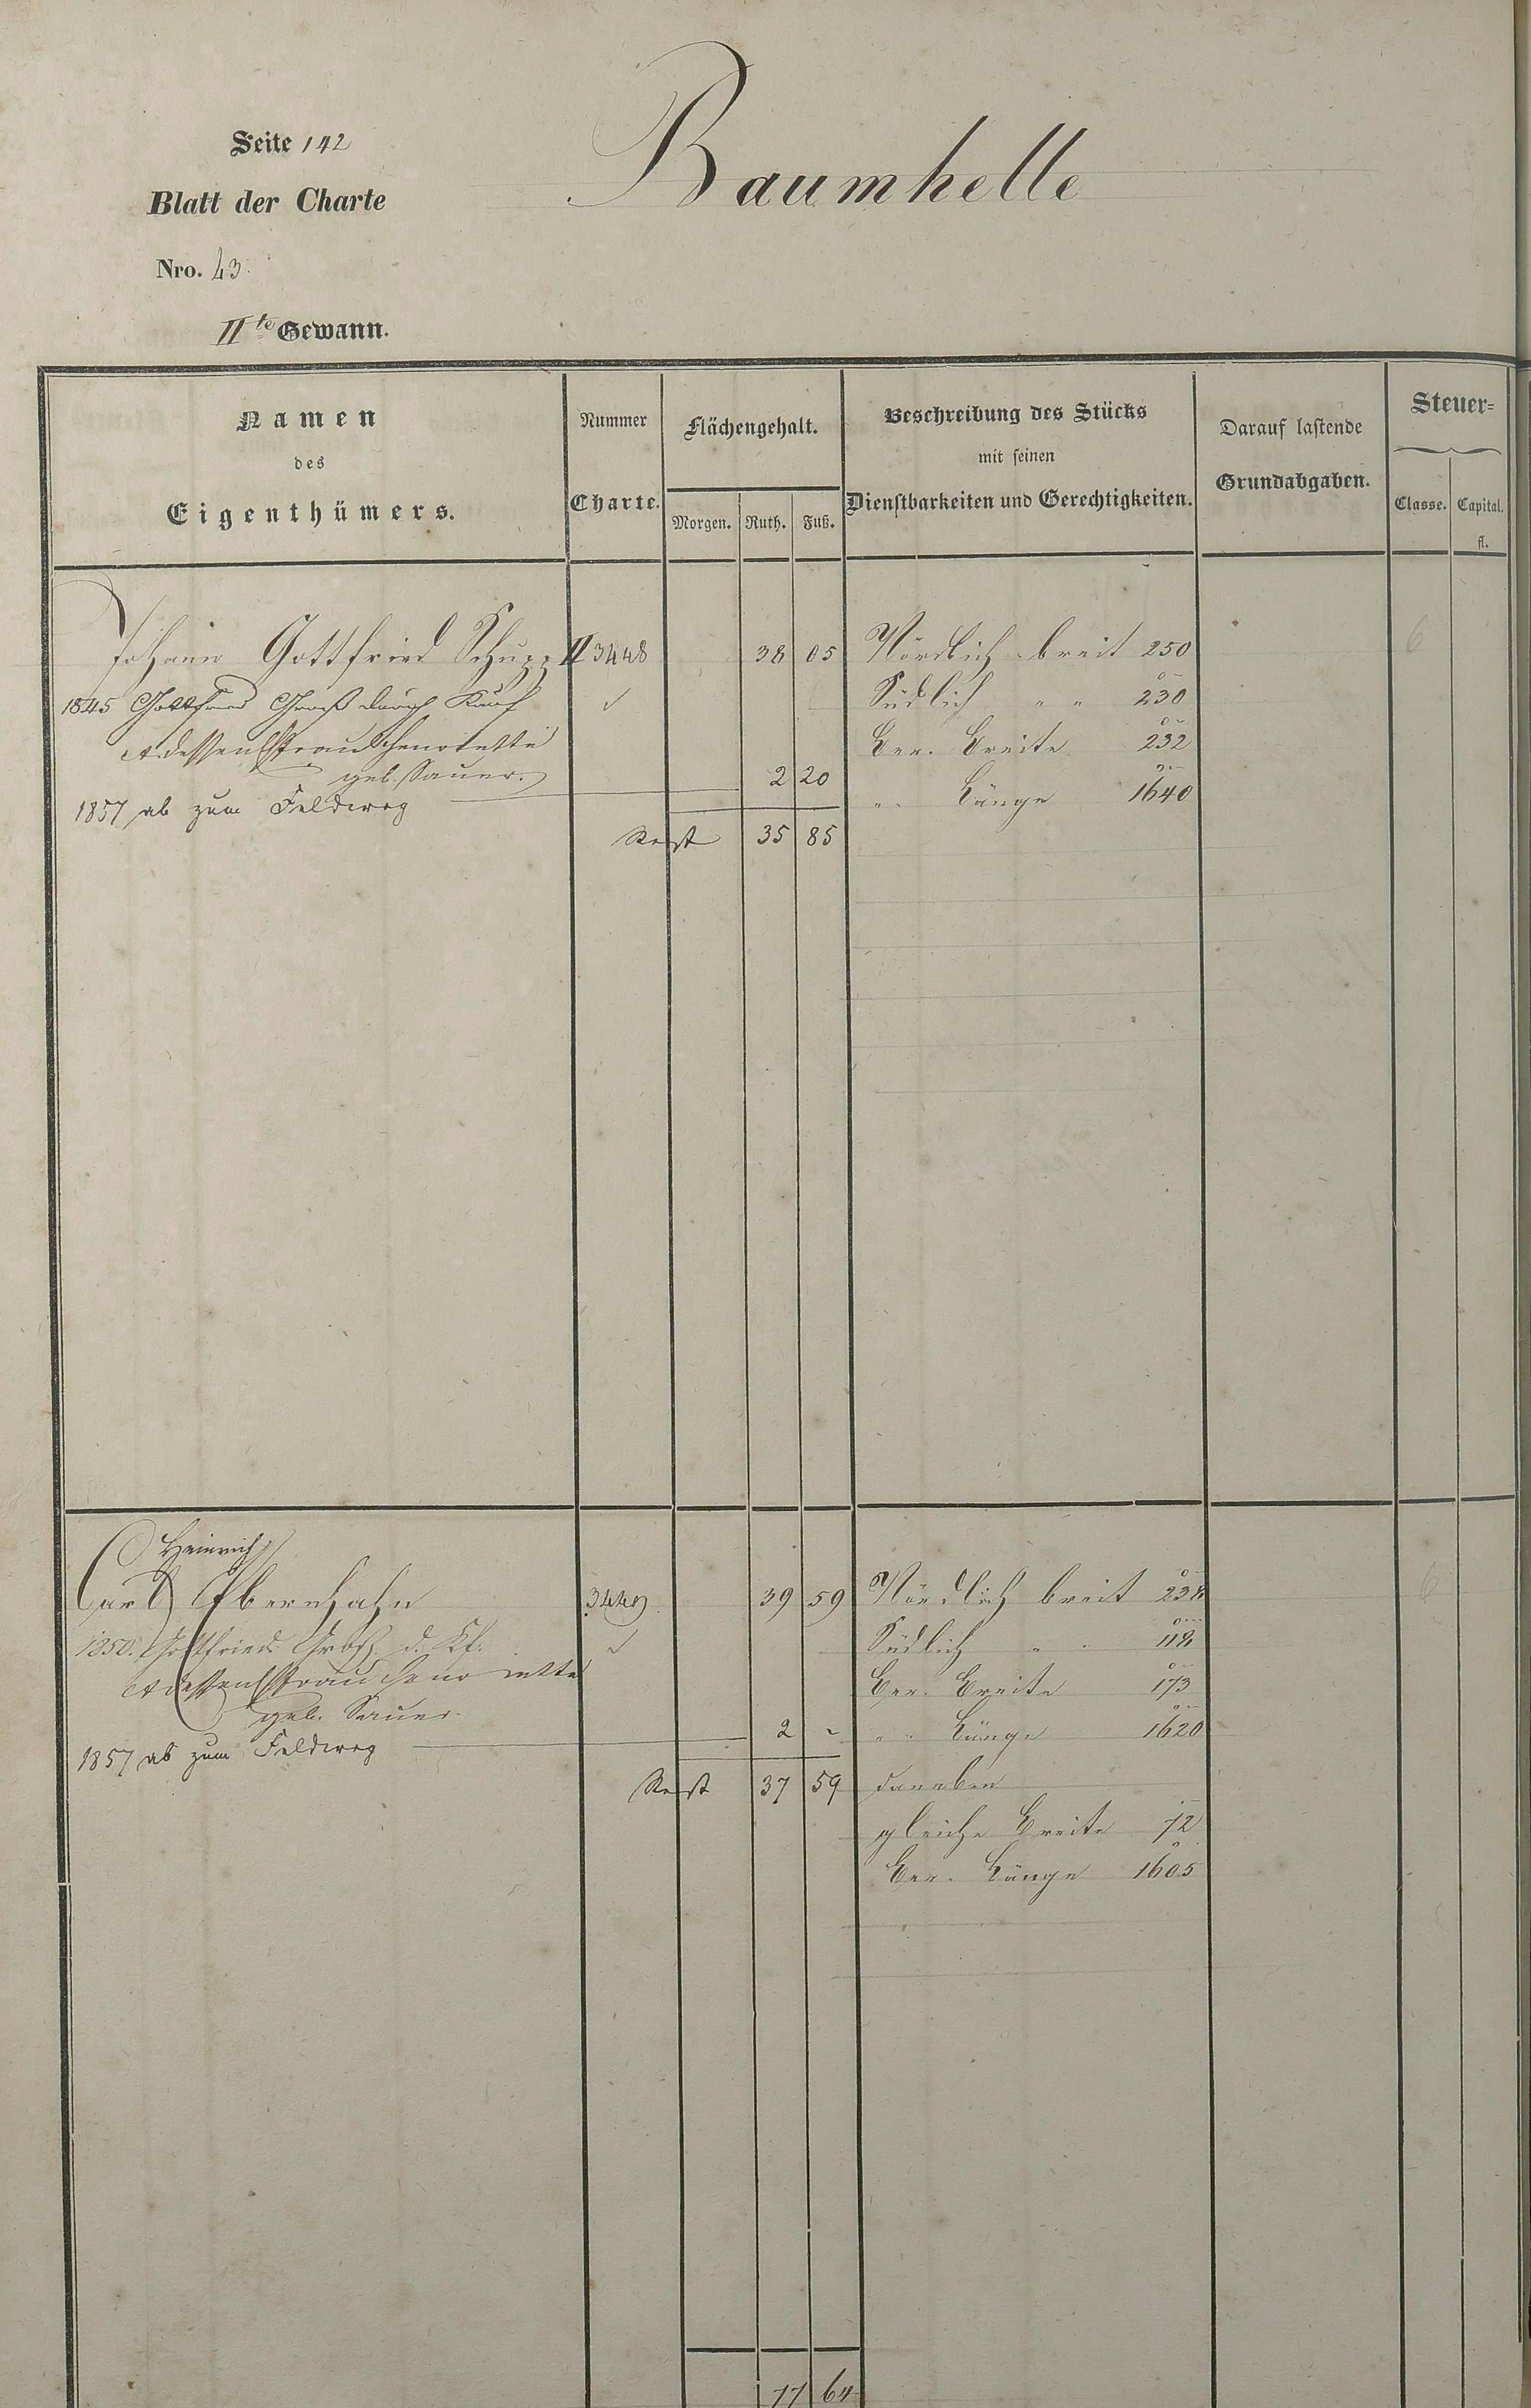 Seite 142
Baumhelle
Blatt der Charte
Nro. 43.
IIte Gewann.
Namen
des
Eigenthümers.
Nummer
Charte.
Flächengehalt.
Morgen. Ruth. Fuß.
Beschreibung des Stücks
mit seinen
Dienstbarkeiten und Gerechtigkeiten.
Darauf lastende
Grundabgaben.
Steuer=
Classe. Capital.
fl.
Johann Gottfried Schupp II 3448 38 05 Nördlich breit 250
1845 Gottfried Groß durch Kauf Südlich " " 230
et dessen Ehefrau Henriette Ber. Breite 232
geb. Sauer. 2 20
1857 ab zum Feldweg " " Länge 1640
Rest 35 85
6
Heinrich
Carl Ebernhahn 3449 39 59 Nördlich breit 238
1850. Gottfried Groß d. Kf. Südlich " " 118
et dessen Ehefrau Henriette Ber. Breite 173
geb. Sauer 2 - " " Länge 1620
1857 ab zum Feldweg
Rest 37 59 daneben
gleiche Breite 72
Ber. Länge 1605
6
77 64